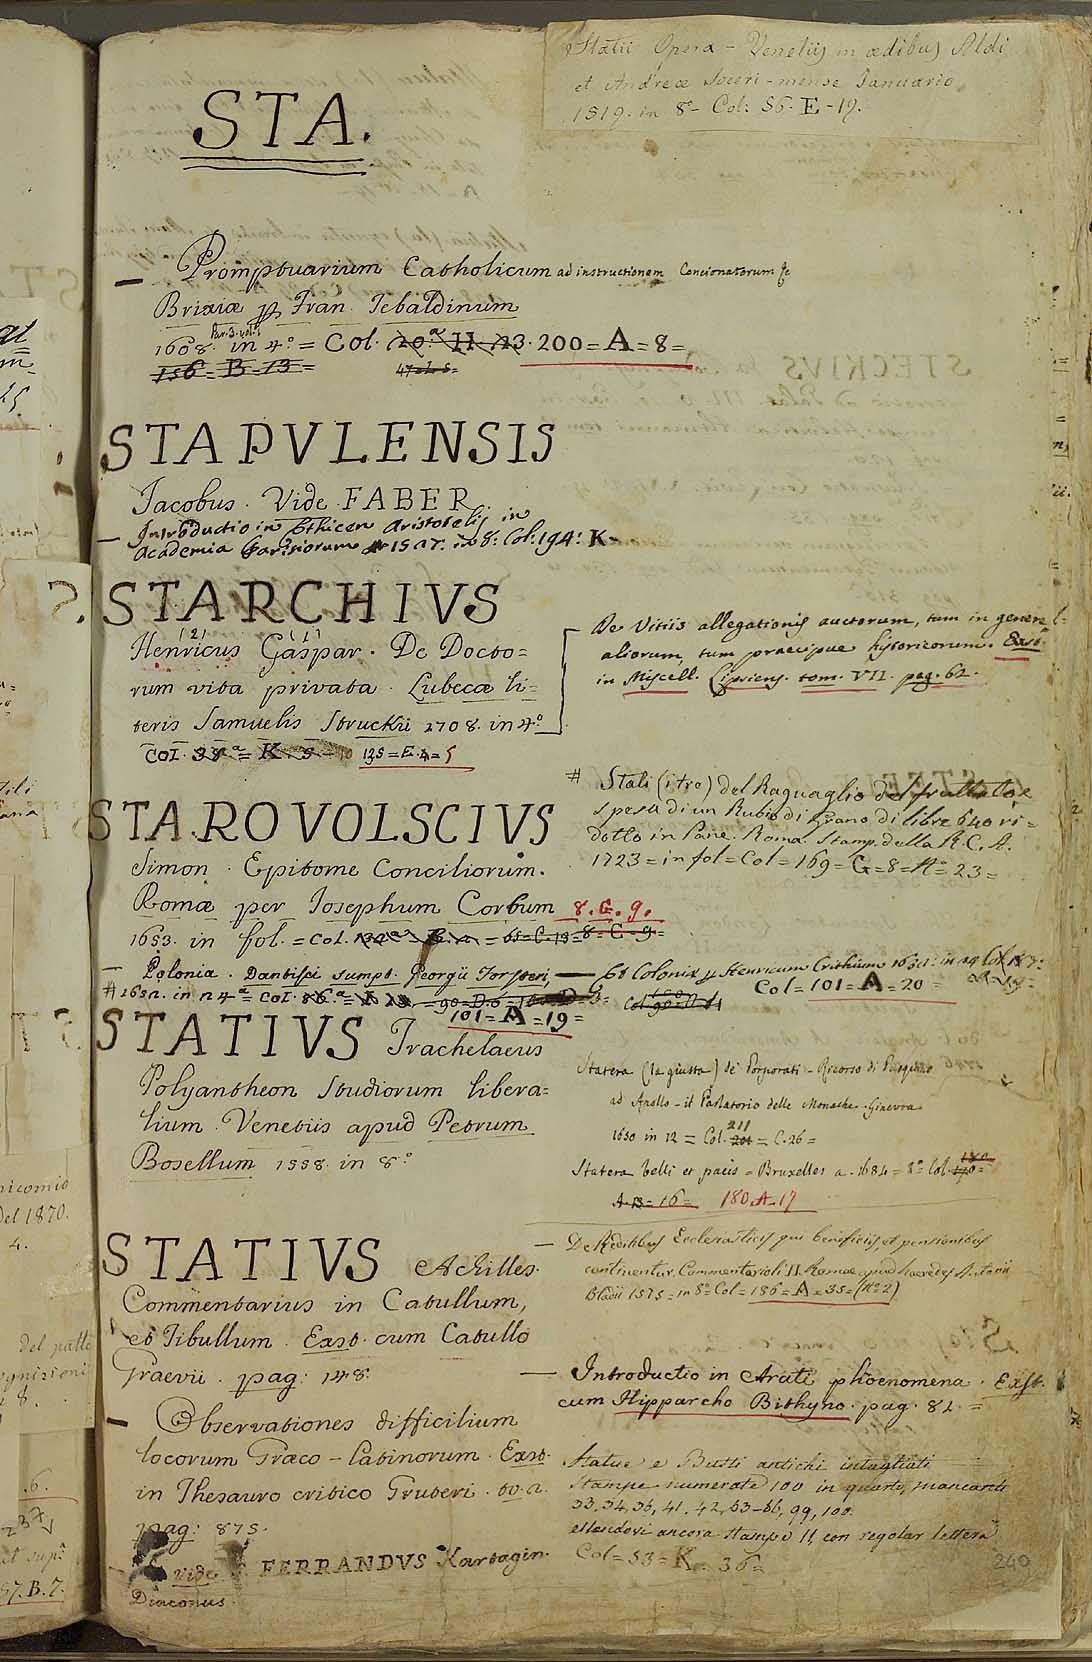 Statii Opera - Venetiis in ædibus Aldi
et Andreæ Soceri - mense Januario
1519. in 8º - Col: 56. E - 19.
STA.
— Promptuarium Catholicum ad instructionem Concionatorum &c
Brixiæ p Fran Tebaldinum
Par. 3. vol. 1
1608. in 4.º = Col. 20.ª H. 23. 200 = A = 8 =
156 = B = 13 =
STAPVLENSIS
Jacobus. Vide FABER
— Introductio in Ethicen Aristotelis in
Academia Parisiorum 1527. in 8: Col: 194: K-
STARCHIVS
(2) (1)
Henricus Gaspar. De Docto=
rum vita privata. Lubecæ li=
teris Samuelis Struckii 1708. in 4º
Col. 38ª = K. 125 = E. 4 = 5
De Vitiis allegationis auctorum, tum in gener
aliorum, tum præcipue historicorum. Exst.
in Miscell. Lipsiens. tom. VII. pag. 62.
STAROVOLSCIVS
Simon. Epitome Conciliorum.
Romæ per Iosephum Corbum 8. G. 9.
1653. in fol. = Col. = 65 = C. 13 = 8 = G = 9 =
— Polonia. Dantisci sumpt. Georgii Forsteri,
# 1652. in 24ª = Col.
101 = A = 19 =
# Stali (itre) del Raguaglio del fruttato, e
spesa di un Rubio di Grano di libre 640 ri=
dotto in Pane. Roma. Stamp. della R. C. A.
1723 = in fol = Col = 169 = G = 8 = Nº 23 =
— Et Coloniæ p Henricum Crithium
Col = 101 = A = 20 =
STATIVS Trachelaeus
Polyantheon Studiorum libera=
lium. Venetiis apud Petrum
Bosellum 1558. in 8º
Statera (la giusta) de' Porporati - Ricorso di Pasquino
ad Apollo - il Parlatorio delle Monache. Ginevra
211
1650 in 12 = Col. 201 = C. 26 =
Statera belli et pacis = Bruxelles a. 1684 = 8º Col.
A. B = 16 = 180. A. 17
STATIVS Achilles.
Commentarius in Catullum,
et Tibullum. Exst. cum Catullo
Graevii. pag: 148.
— Observationes difficilium
locorum Græco - Latinorum. Exst.
in Thesauro critico Gruteri. to. 2.
pag: 875.
vide FERRANDVS Kartagin.
Diaconus.
— De Reditibus Ecclesiasticis qui beneficiis, et pensionibus
continentur. Commentarioli II. Romæ apud hæredes Antonii
Bladii 1575 = in 8º Col = 186 = A = 35 = (Nº 2)
— Introductio in Arati phœnomena. Exst.
cum Hipparcho Bithyno. pag. 82. =
Statue e Busti antichi intagliati
Stampe numerate 100 in quarto, mancanti
33, 34, 36, 41, 42, 63-66, 99, 100.
essendovi ancora Stampe 11, con regolar lettera
Col = 53 = K. 36 =
240